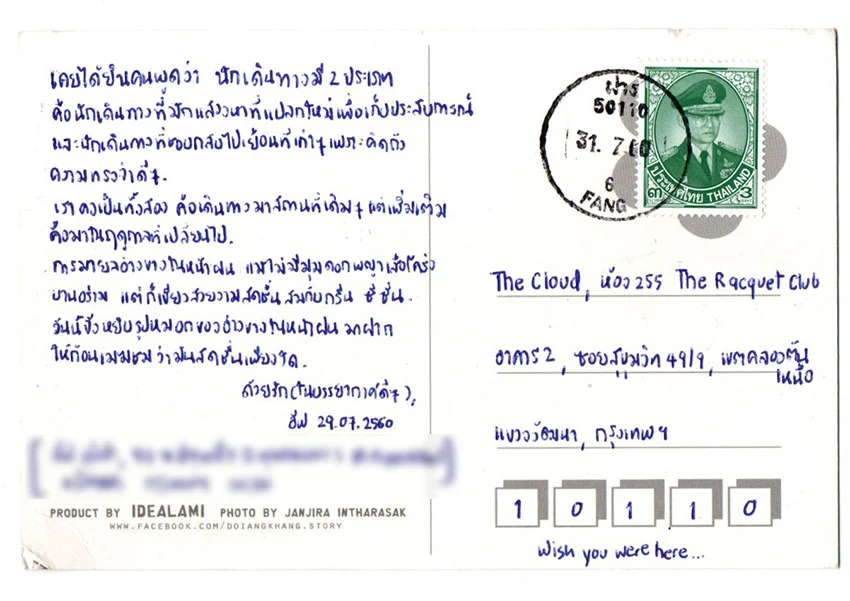 เคยได้ยินคนพูดว่า นักเดินทางมี 2 ประเภท
คือนักเดินทางที่มักแสวงหาที่แปลกใหม่เพื่อเก็บประสบการณ์
และนักเดินทางที่ชอบกลับไปเยือนที่เก่าๆ เพราะคิดถึง
ความทรงจำดีๆ.
เราคงเป็นทั้งสอง คือเดินทางมาสถานที่เดิมๆ แต่เพิ่มเติม
คือมาในฤดูกาลที่เปลี่ยนไป.
การมาดอยอ่างขางในหน้าฝน แม้ไม่มีมุมดอกพญาเสือโคร่ง
บานอร่าม แต่ก็เขียวสวยงามสดชื่น สมกับกรีน ซีซั่น.
วันนี้จึงหยิบรูปหมอกของอ่างขางในหน้าฝน มาฝาก
ให้ก้อนเมฆชม ว่ามันสดชื่นเพียงใด.
ด้วยรัก (ในบรรยากาศดีๆ),
29.07.2560
PRODUCT BY IDEALAMI PHOTO BY JANJIRA INTHARASAK
WWW.FACEBOOK.COM/DOIANGKHANG.STORY
ฝาง
50110
31. 7 60
6
FANG
ประเทศไทย THAILAND
๓ 3
The Cloud, ห้อง 255 The Racquet Club
อาคาร 2, ซอยสุขุมวิท 49/9, เขตคลองตัน
เหนือ
แขวงวัฒนา, กรุงเทพฯ
1 0 1 1 0
Wish you were here...